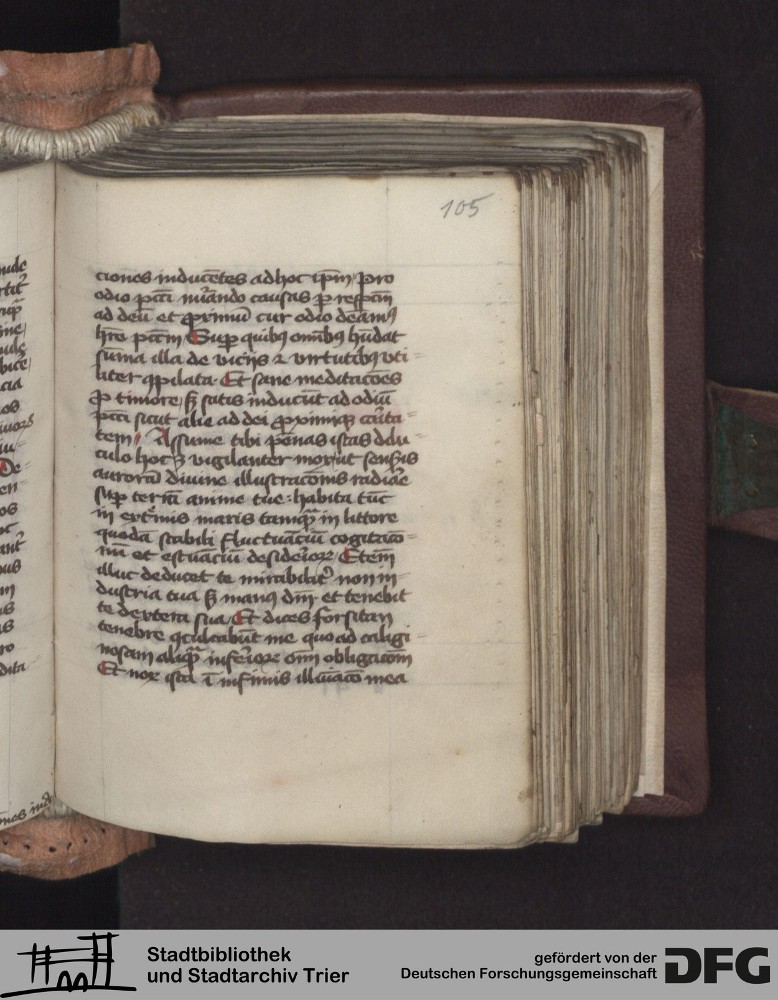 105
ciones inducētes ad hoc ip̄m pro
odio pctī nūando causas p respctm
ad deū et proximū cur odio deām9
hr̄e pctm Sup quibꝫ omībꝫ hūdat
sūma illa de vicijs ⁊ virtutibꝫ vti=
liter ꝯpilata Et sane meditacōes
ꝓ timore sꝫ satis inducūt ad odiū
pctī sicut alie ad dei proximiqꝫ cārita=
tem Assume tibi pēnas istas dilu=
culo hoc ē vigilanter mox ut sensis
aurorā divine illustracōnis radiāe
sup terrā anime tue : habita tūc
in extrēmis maris tamqꝫ in littore
quodā stabili fluctuāciū cogitacō=
nū et estuāciū desiderioꝝ Etem̄
illuc deducet te mirabilitꝰ non in
dustria tua sꝫ manꝰ dn̄i et tenebit
te dextera sua Et dices forsitan
tenebre ꝯculcabūt me quo ad caligi=
nosam aliqꝫ inferioꝝ om̄ obligacōm
Et nox ista ī infimis illūiacō mea
Stadtbibliothek
und Stadtarchiv Trier
gefördert von der
Deutschen Forschungsgemeinschaft
DFG